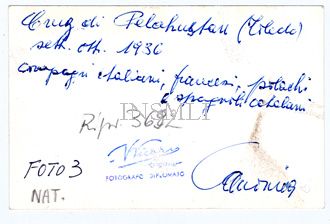 Cruz di Pelahustan (Toledo)
sett. ott. 1936
compagni italiani, francesi, polachi
e spagnoli catalani
INSMLI
Ripr. 3692
FOTO 3
NAT.
FOTOGRAFO DIPLOMATO